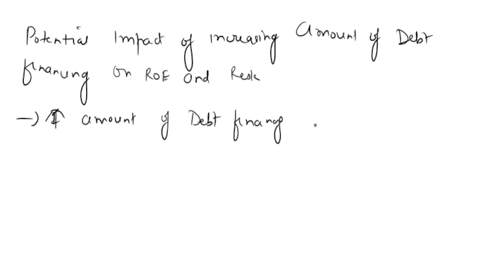 Potential Impact of increasing Amount of Debt
financing on ROE and Risk
→ ↑ amount of Debt financing